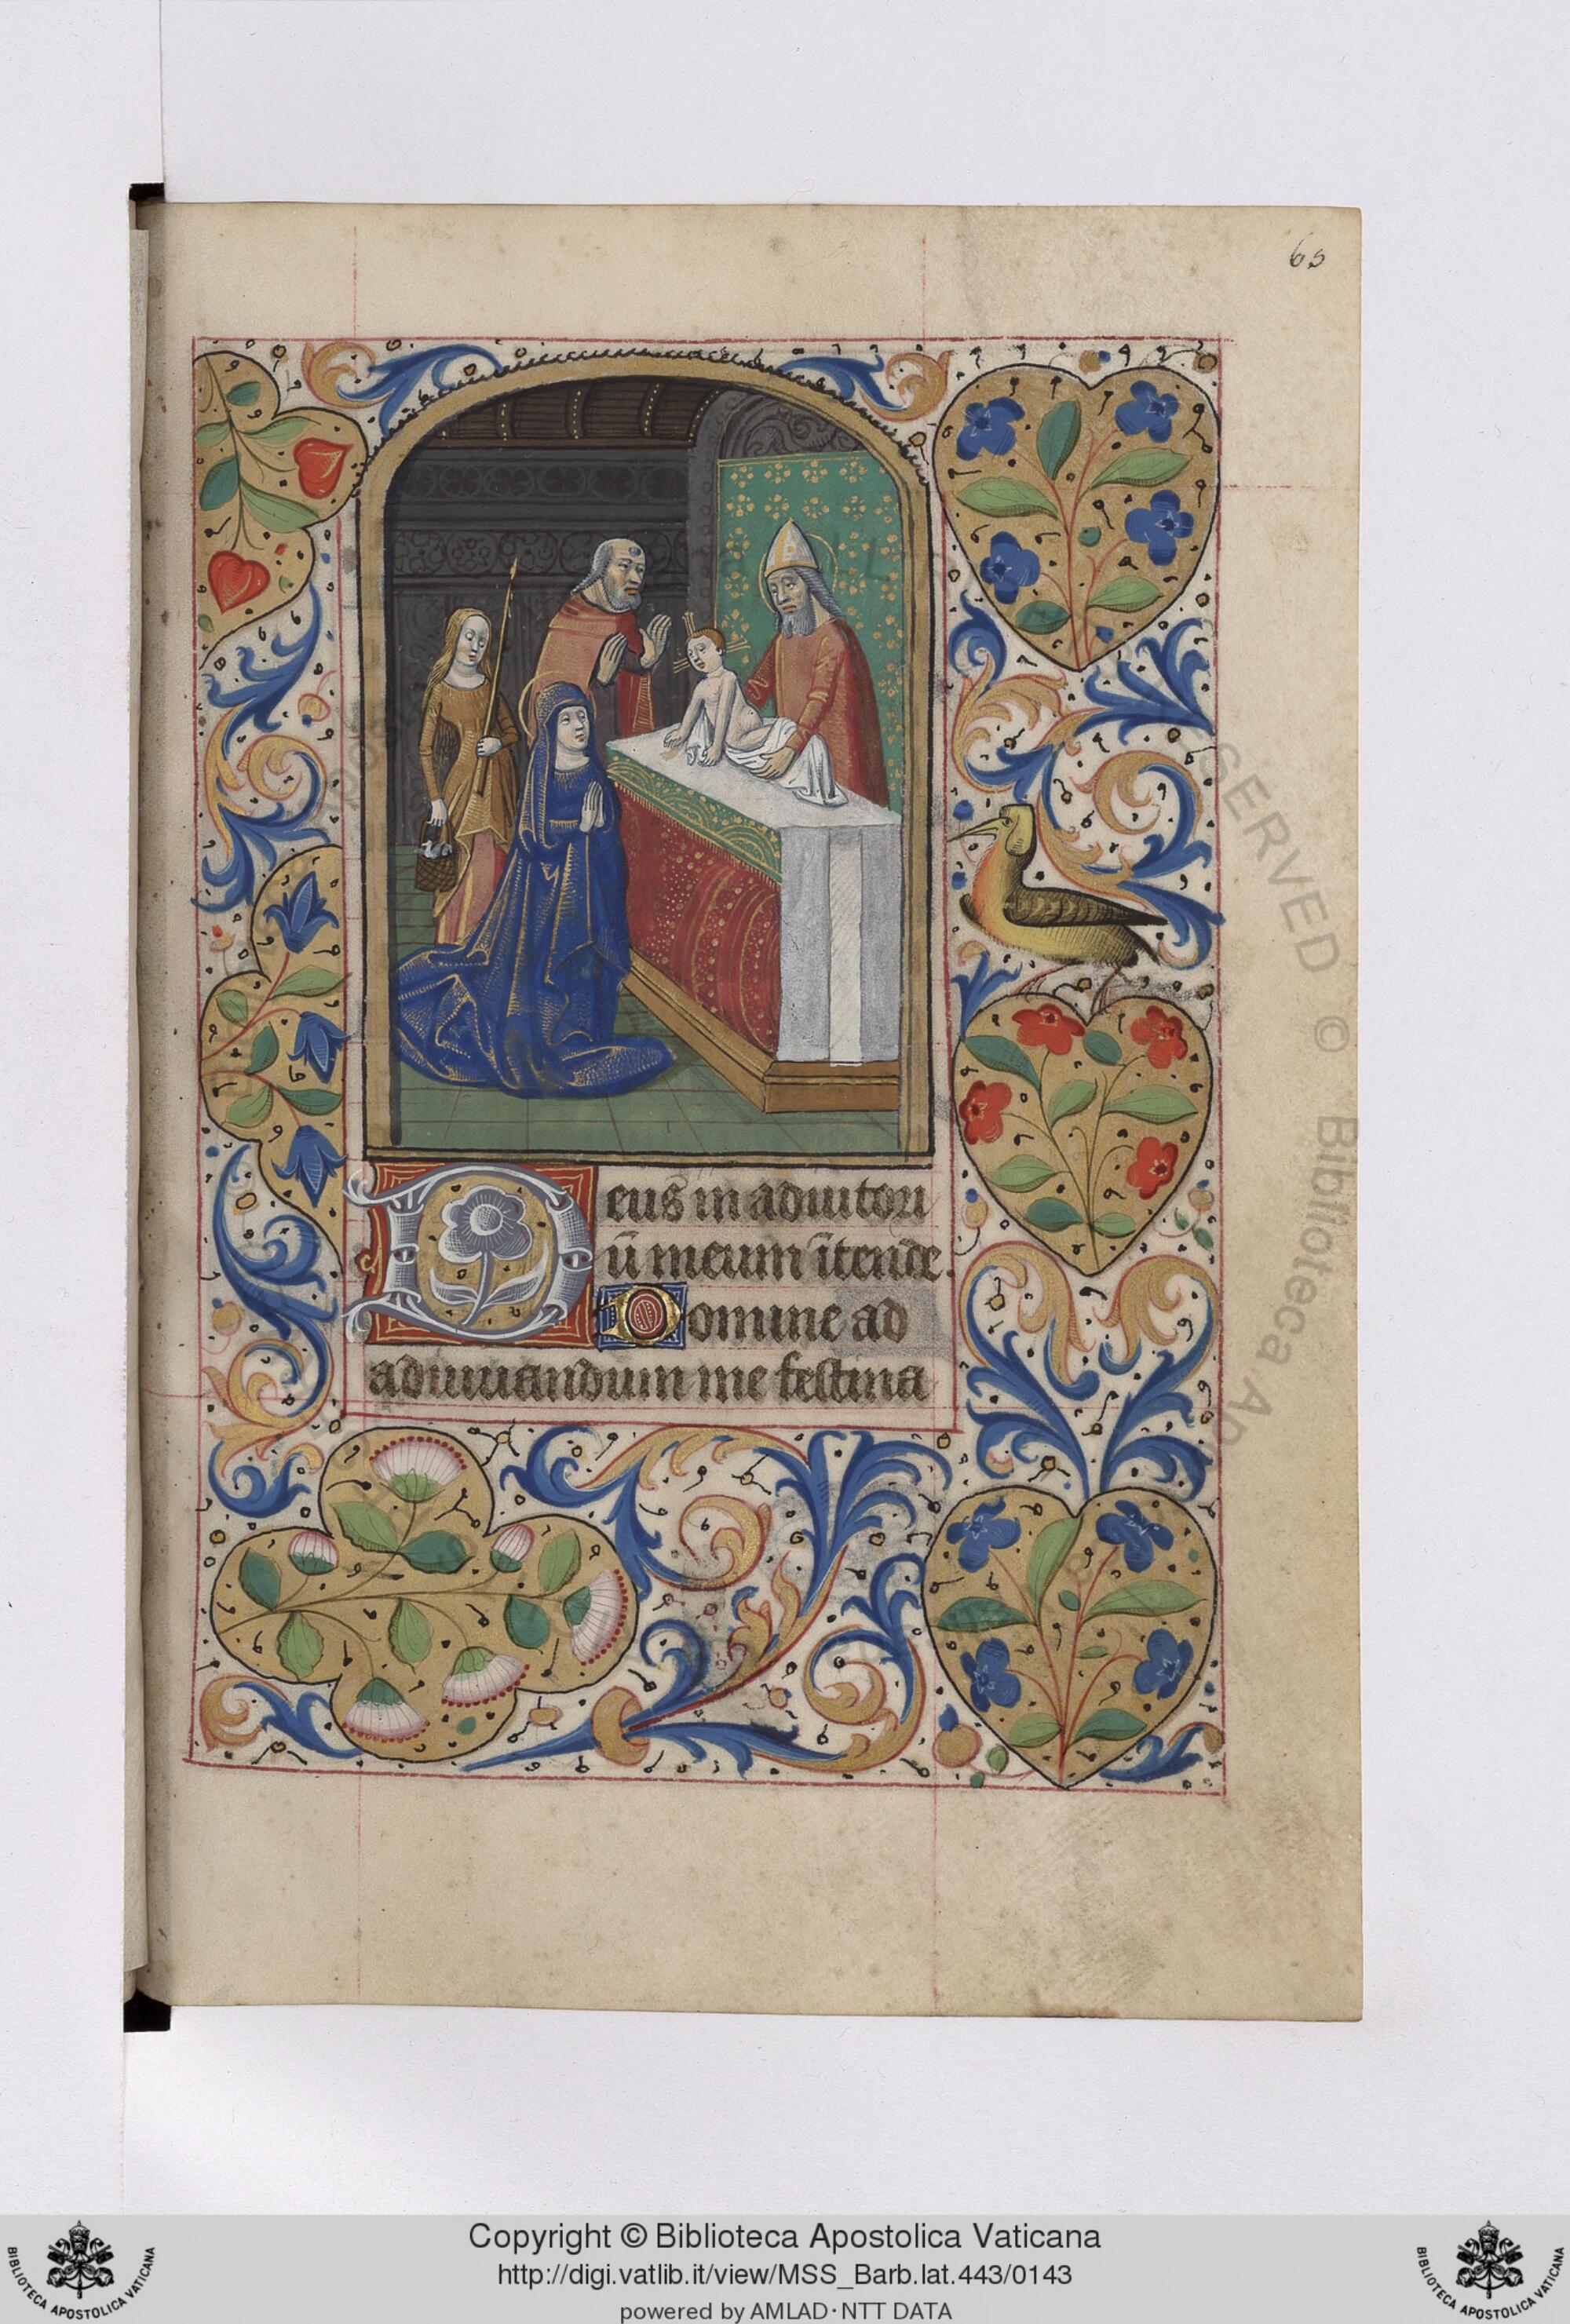 65
Deus in adiutori
ū meum ītende.
Domine ad
adiuuandum me festina
RESERVED © Biblioteca Apo
Copyright © Biblioteca Apostolica Vaticana
http://digi.vatlib.it/view/MSS_Barb.lat.443/0143
powered by AMLAD·NTT DATA
BIBLIOTECA APOSTOLICA VATICANA
BIBLIOTECA APOSTOLICA VATICANA